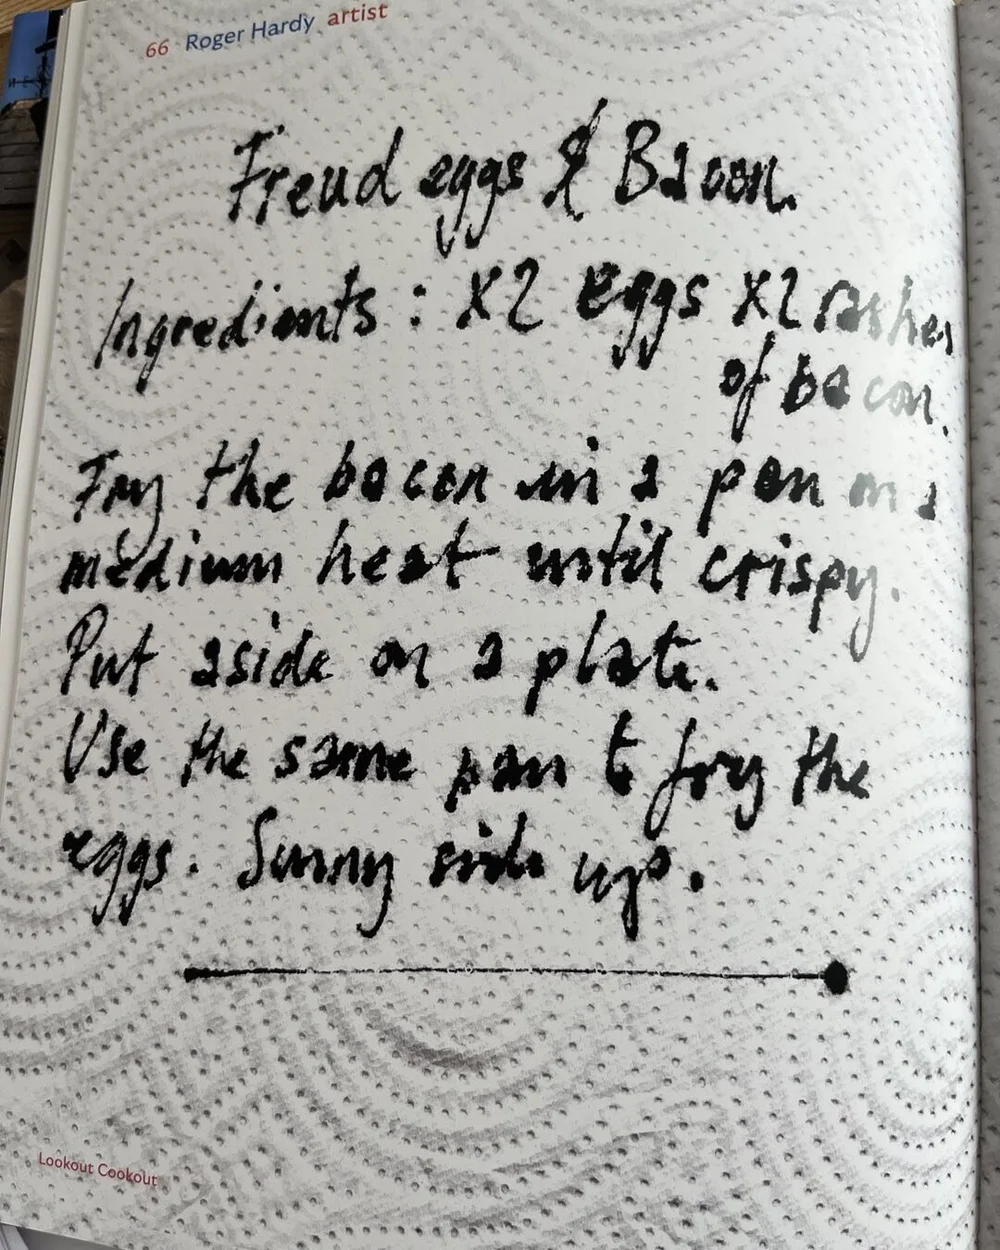 66 Roger Hardy artist
Freud eggs & Bacon.
Ingredients : x2 eggs x2 rashers
of bacon.
Fry the bacon in a pan on a
medium heat until crispy.
Put aside on a plate.
Use the same pan to fry the
eggs. Sunny side up.
Lookout Cookout